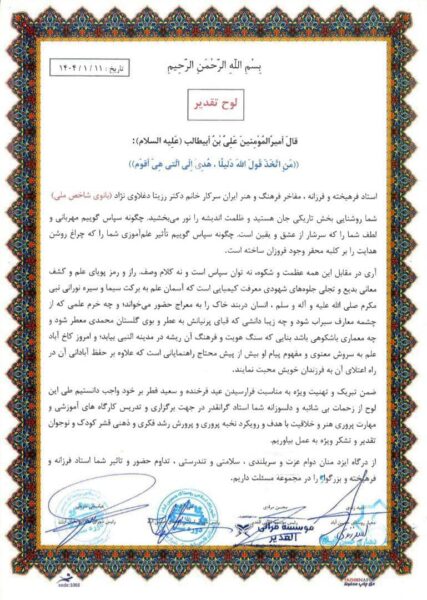 بِسْمِ اللهِ الرَّحْمَنِ الرَّحِیمِ
تاریخ : ۱۴۰۴/۱/۱۱
لوح تقدیر
قالَ اَمیرُ المُؤمِنینَ عَلِیُّ بْنُ اَبیطالب (عَلیهِ السلام):
((مَنِ اتَّخَذَ قَولَ اللهِ دَلیلًا ، هُدِیَ اِلَی الَّتی هِیَ اَقوَم))
استاد فرهیخته و فرزانه ، مفاخر فرهنگ و هنر ایران سرکار خانم دکتر رزیتا دغلاوی نژاد (بانوی شاخص ملی)
شما روشنایی بخش تاریکی جان هستید و ظلمت اندیشه را نور می‌بخشید. چگونه سپاس گوییم مهربانی و
لطف شما را که سرشار از عشق و یقین است. چگونه سپاس گوییم تأثیر علم‌آموزی شما را که چراغ روشن
هدایت را بر کلبه محقر وجود فروزان ساخته است.
آری در مقابل این همه عظمت و شکوه، نه توان سپاس است و نه کلام وصف. راز و رمز پویای علم و کشف
معانی بدیع و تجلی جلوه‌های شهودی معرفت کیمیایی است که آسمان علم به برکت سیما و سیره نورانی نبی
مکرم صلی الله علیه و آله و سلم ، انسان دربند خاک را به معراج حضور می‌خواند؛ و چه خرم علمی که از
چشمه معارف سیراب شود و چه زیبا دانشی که قبای پرنیانش به عطر و بوی گلستان محمدی معطر شود و
چه معماری باشکوهی باشد بنایی که سنگ هویت و فرهنگ آن ریشه در مدینه النبی بیابد؛ و امروز کاخ آباد
علم به سروش معنوی و مفهوم پیام او بیش از پیش محتاج راهنمایانی است که علاوه بر حفظ آبادانی آن در
راه اعتلای آن به فرزندان خویش محبت نمایند.
ضمن تبریک و تهنیت ویژه به مناسبت فرارسیدن عید فرخنده و سعید فطر بر خود واجب دانستیم طی این
لوح از زحمات بی شائبه و دلسوزانه شما استاد گرانقدر در جهت برگزاری و تدریس کارگاه های آموزشی و
مهارت پروری هنر و خلاقیت با هدف و رویکرد نخبه پروری و پرورش رشد فکری و ذهنی قشر کودک و نوجوان
تقدیر و تشکر ویژه به عمل بیاوریم.
از درگاه ایزد منان دوام عزت و سربلندی ، سلامتی و تندرستی ، تداوم حضور و تاثیر شما استاد فرزانه و
فرهیخته و بزرگوار را در مجموعه مسئلت داریم.
موسسه قرآنی
الغدیر
code:1002